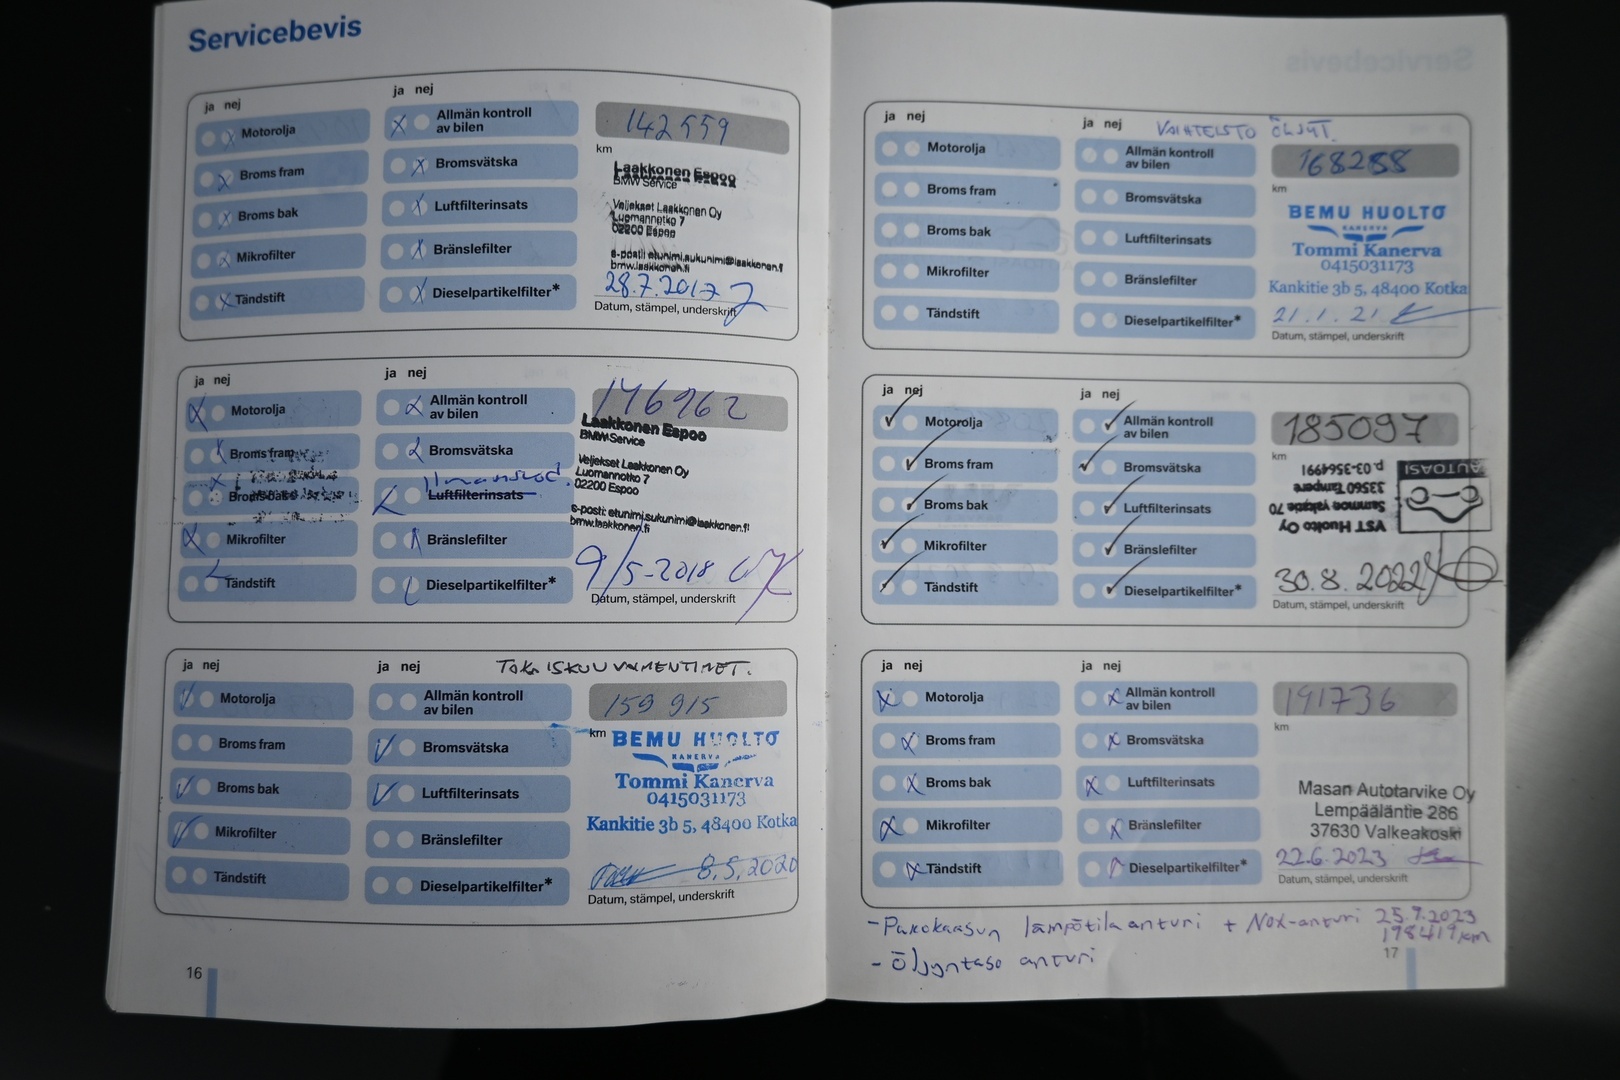 Servicebevis
ja nej
Motorolja
Broms fram
Broms bak
Mikrofilter
Tändstift
ja nej
Allmän kontroll
av bilen
Bromsvätska
Luftfilterinsats
Bränslefilter
Dieselpartikelfilter*
142559
km
Laakkonen Espoo
BMW Service
Veljekset Laakkonen Oy
Luomannotko 7
02200 Espoo
e-posti: etunimi.sukunimi@laakkonen.fi
bmw.laakkonen.fi
28.7.2017
Datum, stämpel, underskrift
ja nej
Motorolja
Broms fram
Broms bak
Mikrofilter
Tändstift
ja nej
Allmän kontroll
av bilen
Bromsvätska
Luftfilterinsats
Bränslefilter
Dieselpartikelfilter*
146962
Laakkonen Espoo
BMW Service
Veljekset Laakkonen Oy
Luomannotko 7
02200 Espoo
e-posti: etunimi.sukunimi@laakkonen.fi
bmw.laakkonen.fi
9/5-2018
Datum, stämpel, underskrift
ja nej
Motorolja
Broms fram
Broms bak
Mikrofilter
Tändstift
ja nej
TAKA ISKUNVAIMENTIMET.
Allmän kontroll
av bilen
Bromsvätska
Luftfilterinsats
Bränslefilter
Dieselpartikelfilter*
159 915
km
BEMU HUOLTO
KANERVA
Tommi Kanerva
0415031173
Kankitie 3b 5, 48400 Kotka
8.5.2020
Datum, stämpel, underskrift
16
ja nej
Motorolja
Broms fram
Broms bak
Mikrofilter
Tändstift
ja nej
VAIHTEISTO ÖLJYT.
Allmän kontroll
av bilen
Bromsvätska
Luftfilterinsats
Bränslefilter
Dieselpartikelfilter*
168288
km
BEMU HUOLTO
KANERVA
Tommi Kanerva
0415031173
Kankitie 3b 5, 48400 Kotka
21.1.21
Datum, stämpel, underskrift
ja nej
Motorolja
Broms fram
Broms bak
Mikrofilter
Tändstift
ja nej
Allmän kontroll
av bilen
Bromsvätska
Luftfilterinsats
Bränslefilter
Dieselpartikelfilter*
185097
km
AUTOASI
VST Huolto Oy
Sammon valtatie 70
33560 Tampere
p. 03-3564991
30.8.2022
Datum, stämpel, underskrift
ja nej
Motorolja
Broms fram
Broms bak
Mikrofilter
Tändstift
ja nej
Allmän kontroll
av bilen
Bromsvätska
Luftfilterinsats
Bränslefilter
Dieselpartikelfilter*
191736
km
Masan Autotarvike Oy
Lempääläntie 286
37630 Valkeakoski
22.6.2023
Datum, stämpel, underskrift
- Pakokaasun lämpötila anturi + Nox-anturi 25.9.2023
198419km
- Öljyntaso anturi
17